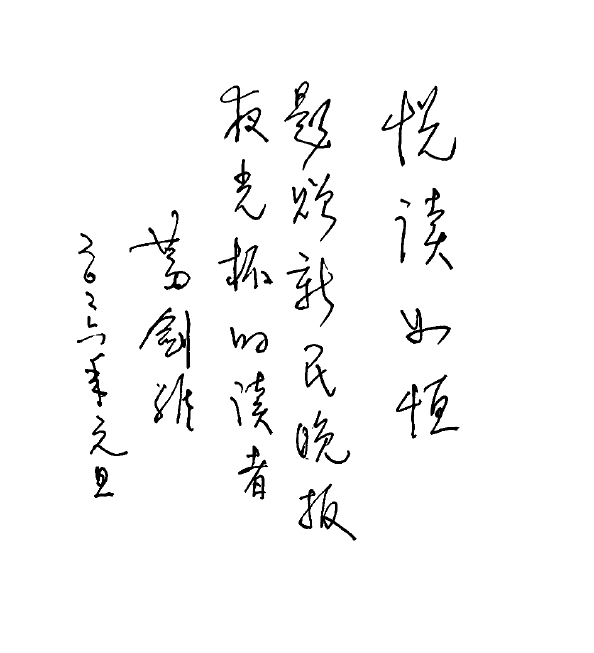 悦读如恒
题赠新民晚报
夜光杯的读者
葛剑雄
二〇二六年元旦